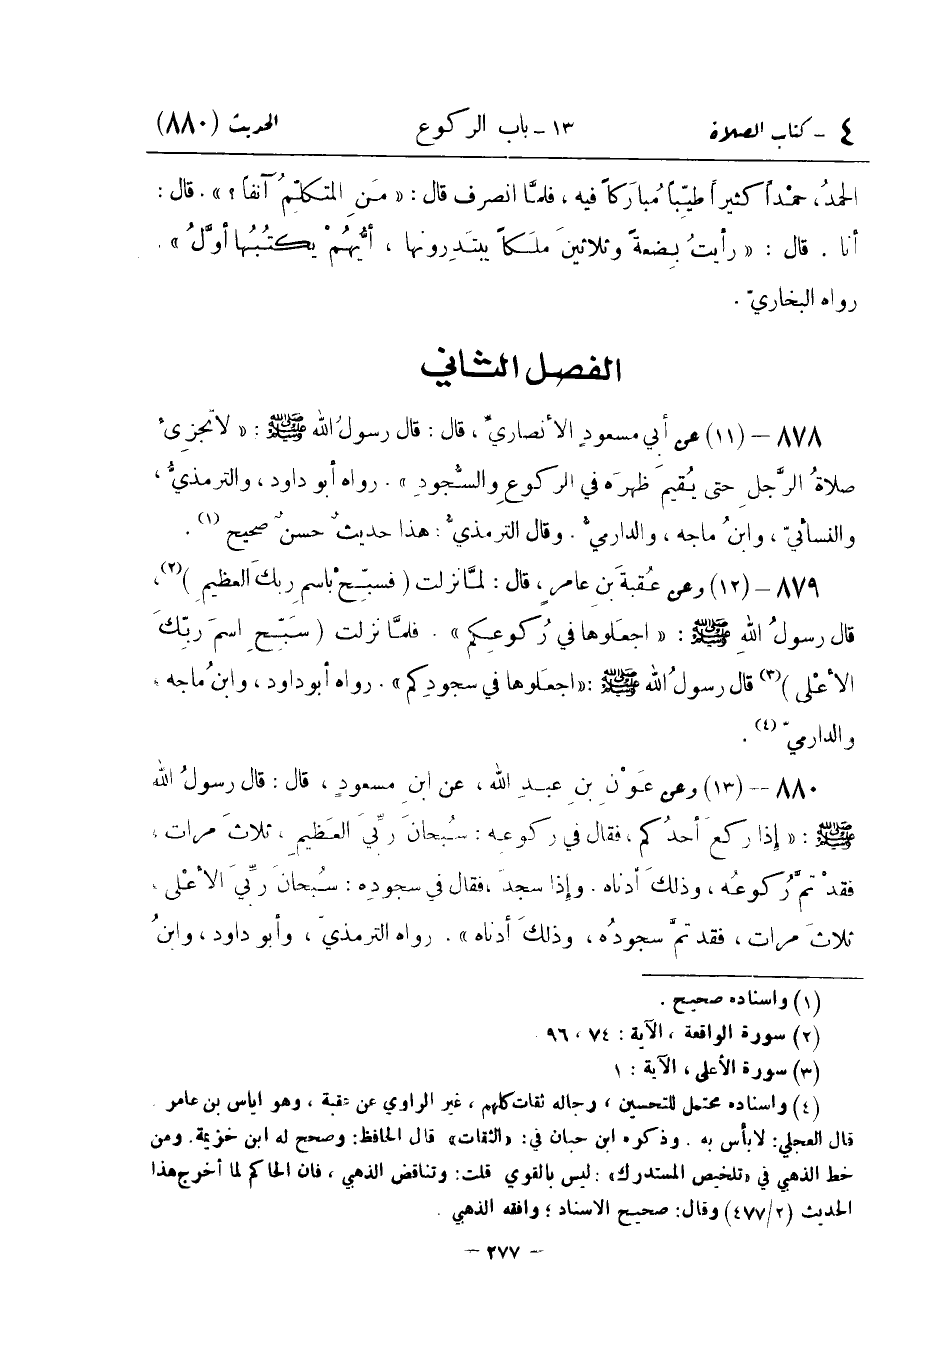 ٤ - كتاب الصلاة ١٣ - باب الركوع الحديث (٨٨٠)
الحمدُ، حمْداً كثيراً طيّباً مُباركاً فيه ، فلمَّا انصرف قال : « مَنِ المتكلّمُ آنفاً ؟ » . قال :
أنا . قال : « رأيتُ بِضعةً وثلاثينَ ملَكاً يبتَدِرونها ، أيُّهُمْ يكتُبُها أوَّلُ » .
رواه البخاريّ .
الفصل الثاني
٨٧٨ – (١١) عن أبي مسعودٍ الأنصاريّ ، قال : قال رسولُ الله ﷺ : « لا تجزىءُ
صلاةُ الرَّجلِ حتى يُقيمَ ظهرَه في الركوعِ والسُّجودِ » . رواه أبو داود ، والترمذيُّ ،
والنسائيّ ، وابنُ ماجه ، والدارميُّ . وقال الترمذيُّ : هذا حديثٌ حسنٌ صحيح (١) .
٨٧٩ – (١٢) وعن عُقبةَ بنِ عامرٍ ، قال : لمَّا نزلت ( فسبّحْ باسمِ ربكَ العظيمِ )(٢)،
قال رسولُ اللهِ ﷺ : « اجعَلوها في رُكوعِكم » . فلمَّا نزلت ( سَبّحِ اسمَ ربّكَ
الأعْلى )(٣) قال رسولُ الله ﷺ : «اجعَلوها في سجودِكم» . رواه أبو داود ، وابنُ ماجه ،
والدارميّ (٤) .
٨٨٠ – (١٣) وعن عَوْنِ بنِ عبدِ الله ، عن ابنِ مسعودٍ ، قال : قال رسولُ الله
ﷺ : « إذا ركعَ أحدُكم ، فقال في ركوعِه : سُبحانَ ربّيَ العظيمِ ، ثلاثَ مرات ،
فقدْ تمَّ رُكوعُه ، وذلكَ أدناه . وإذا سجدَ ، فقال في سجودِه : سُبحانَ ربّيَ الأعْلى ،
ثلاثَ مرات ، فقد تمَّ سجودُه ، وذلكَ أدناه » . رواه الترمذيّ ، وأبو داود ، وابنُ
(١) واسناده صحيح .
(٢) سورة الواقعة ، الآية : ٧٤ ، ٩٦
(٣) سورة الأعلى ، الآية : ١
(٤) واسناده محتمل للتحسين ، رجاله ثقات كلهم ، غير الراوي عن عقبة ، وهو اياس بن عامر .
قال العجلي: لابأس به . وذكره ابن حبان في: «الثقات» قال الحافظ: وصحح له ابن خزيمة. ومن
خط الذهبي في «تلخيص المستدرك» : ليس بالقوي قلت: وتناقض الذهبي ، فان الحاكم لما أخرج هذا
الحديث (٤٧٧/٢) وقال: صحيح الاسناد ؛ وافقه الذهبي .
– ٢٧٧ –